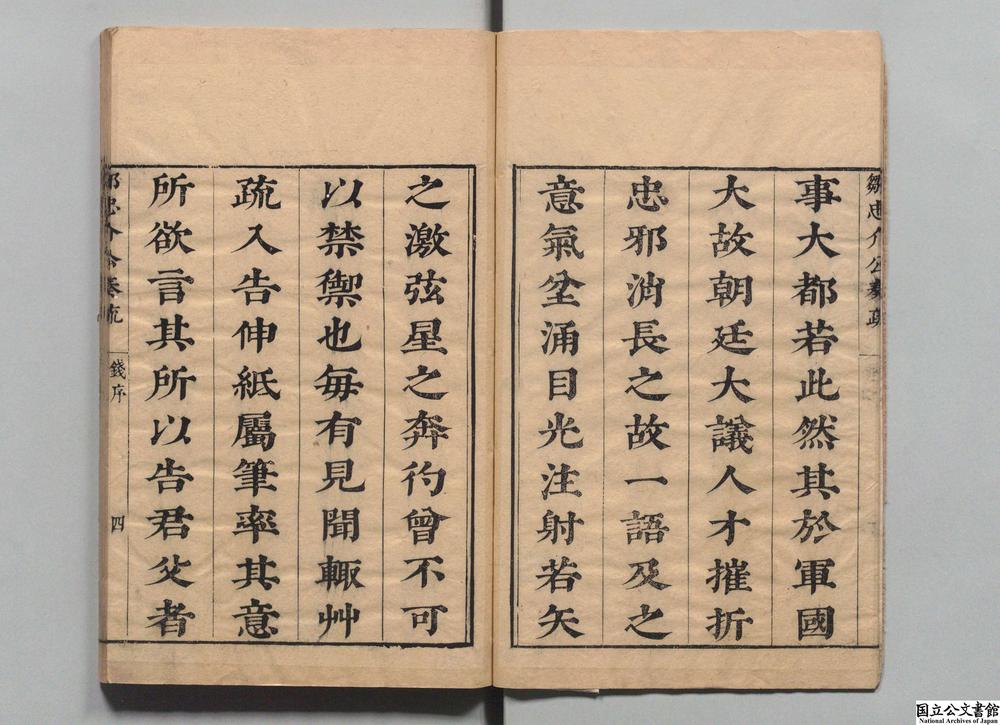 鄒忠介公奏疏
事大都若此然其於軍國
大故朝廷大議人才摧折
忠邪消長之故一語及之
意氣坌涌目光注射若矢
之激弦星之奔彴曾不可
以禁禦也每有見聞輙艸
疏入告伸紙屬筆率其意
所欲言其所以告君父者
鄒忠介公奏疏 錢序 四
国立公文書館
National Archives of Japan